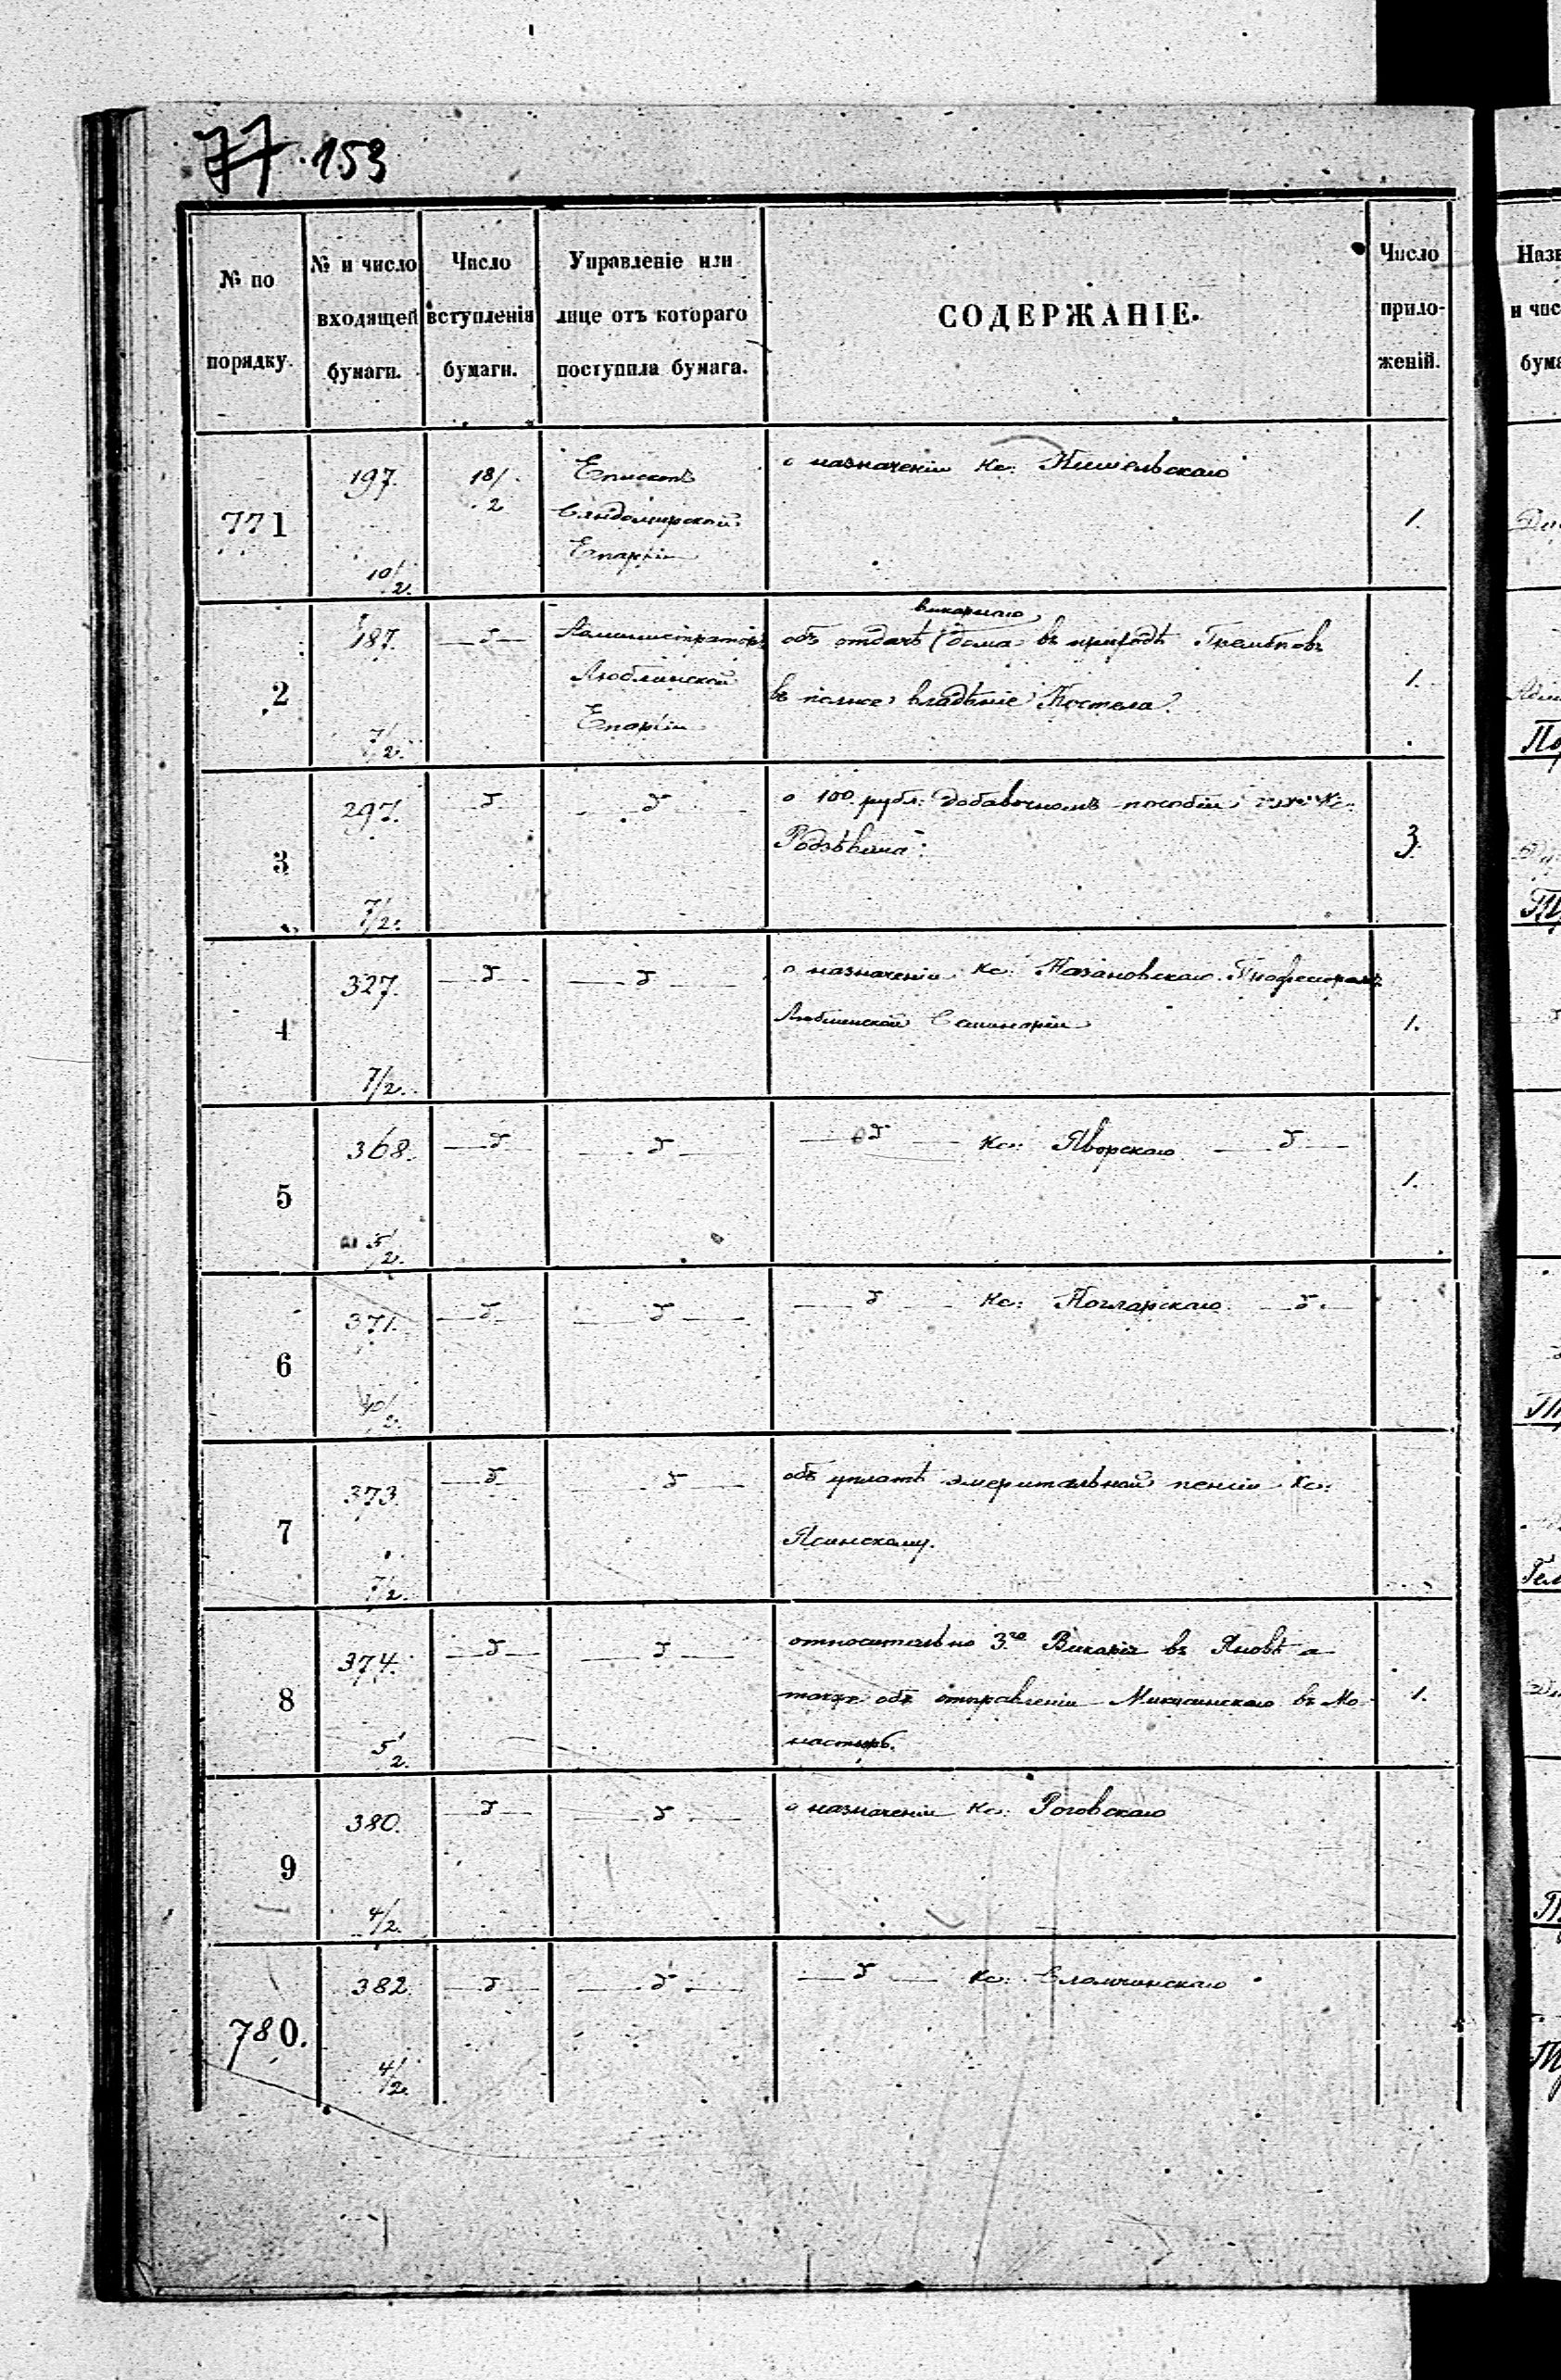 77 153
№ по порядку.
№ и число входящей бумаги.
Число вступленія бумаги.
Управленіе или лице отъ котораго поступила бумага.
СОДЕРЖАНІЕ.
Число приложеній.
771
197.
10/2.
18/2
Епископъ
Сандомирской
Епархіи
о назначеніи Кс:
1.
2
187.
7/2.
Администраторъ
Люблинской
Епархіи
викарнаго
объ отдачѣ дома въ приходѣ
въ полное владѣніе Костела.
1.
3
297.
7/2.
о 100 рубл: добавочномъ пособіи Кс:
3.
4
327.
7/2.
о назначеніи Кс: Казановскаго Профессоромъ
Люблинской Семинаріи
1.
5
368.
5/2.
Кс: Яворскаго
1.
6
371.
10/2.
Кс:
7
373.
7/2.
объ уплатѣ эмеритальной пенсіи Кс:
Ясинскому.
8
374.
5/2.
относительно 3го Викарія въ Яновѣ а
также объ отправленіи въ Мо-
настырь.
1.
9
380.
4/2.
о назначеніи Кс: Роговскаго
780.
382.
4/2.
Кс: Сломчинскаго